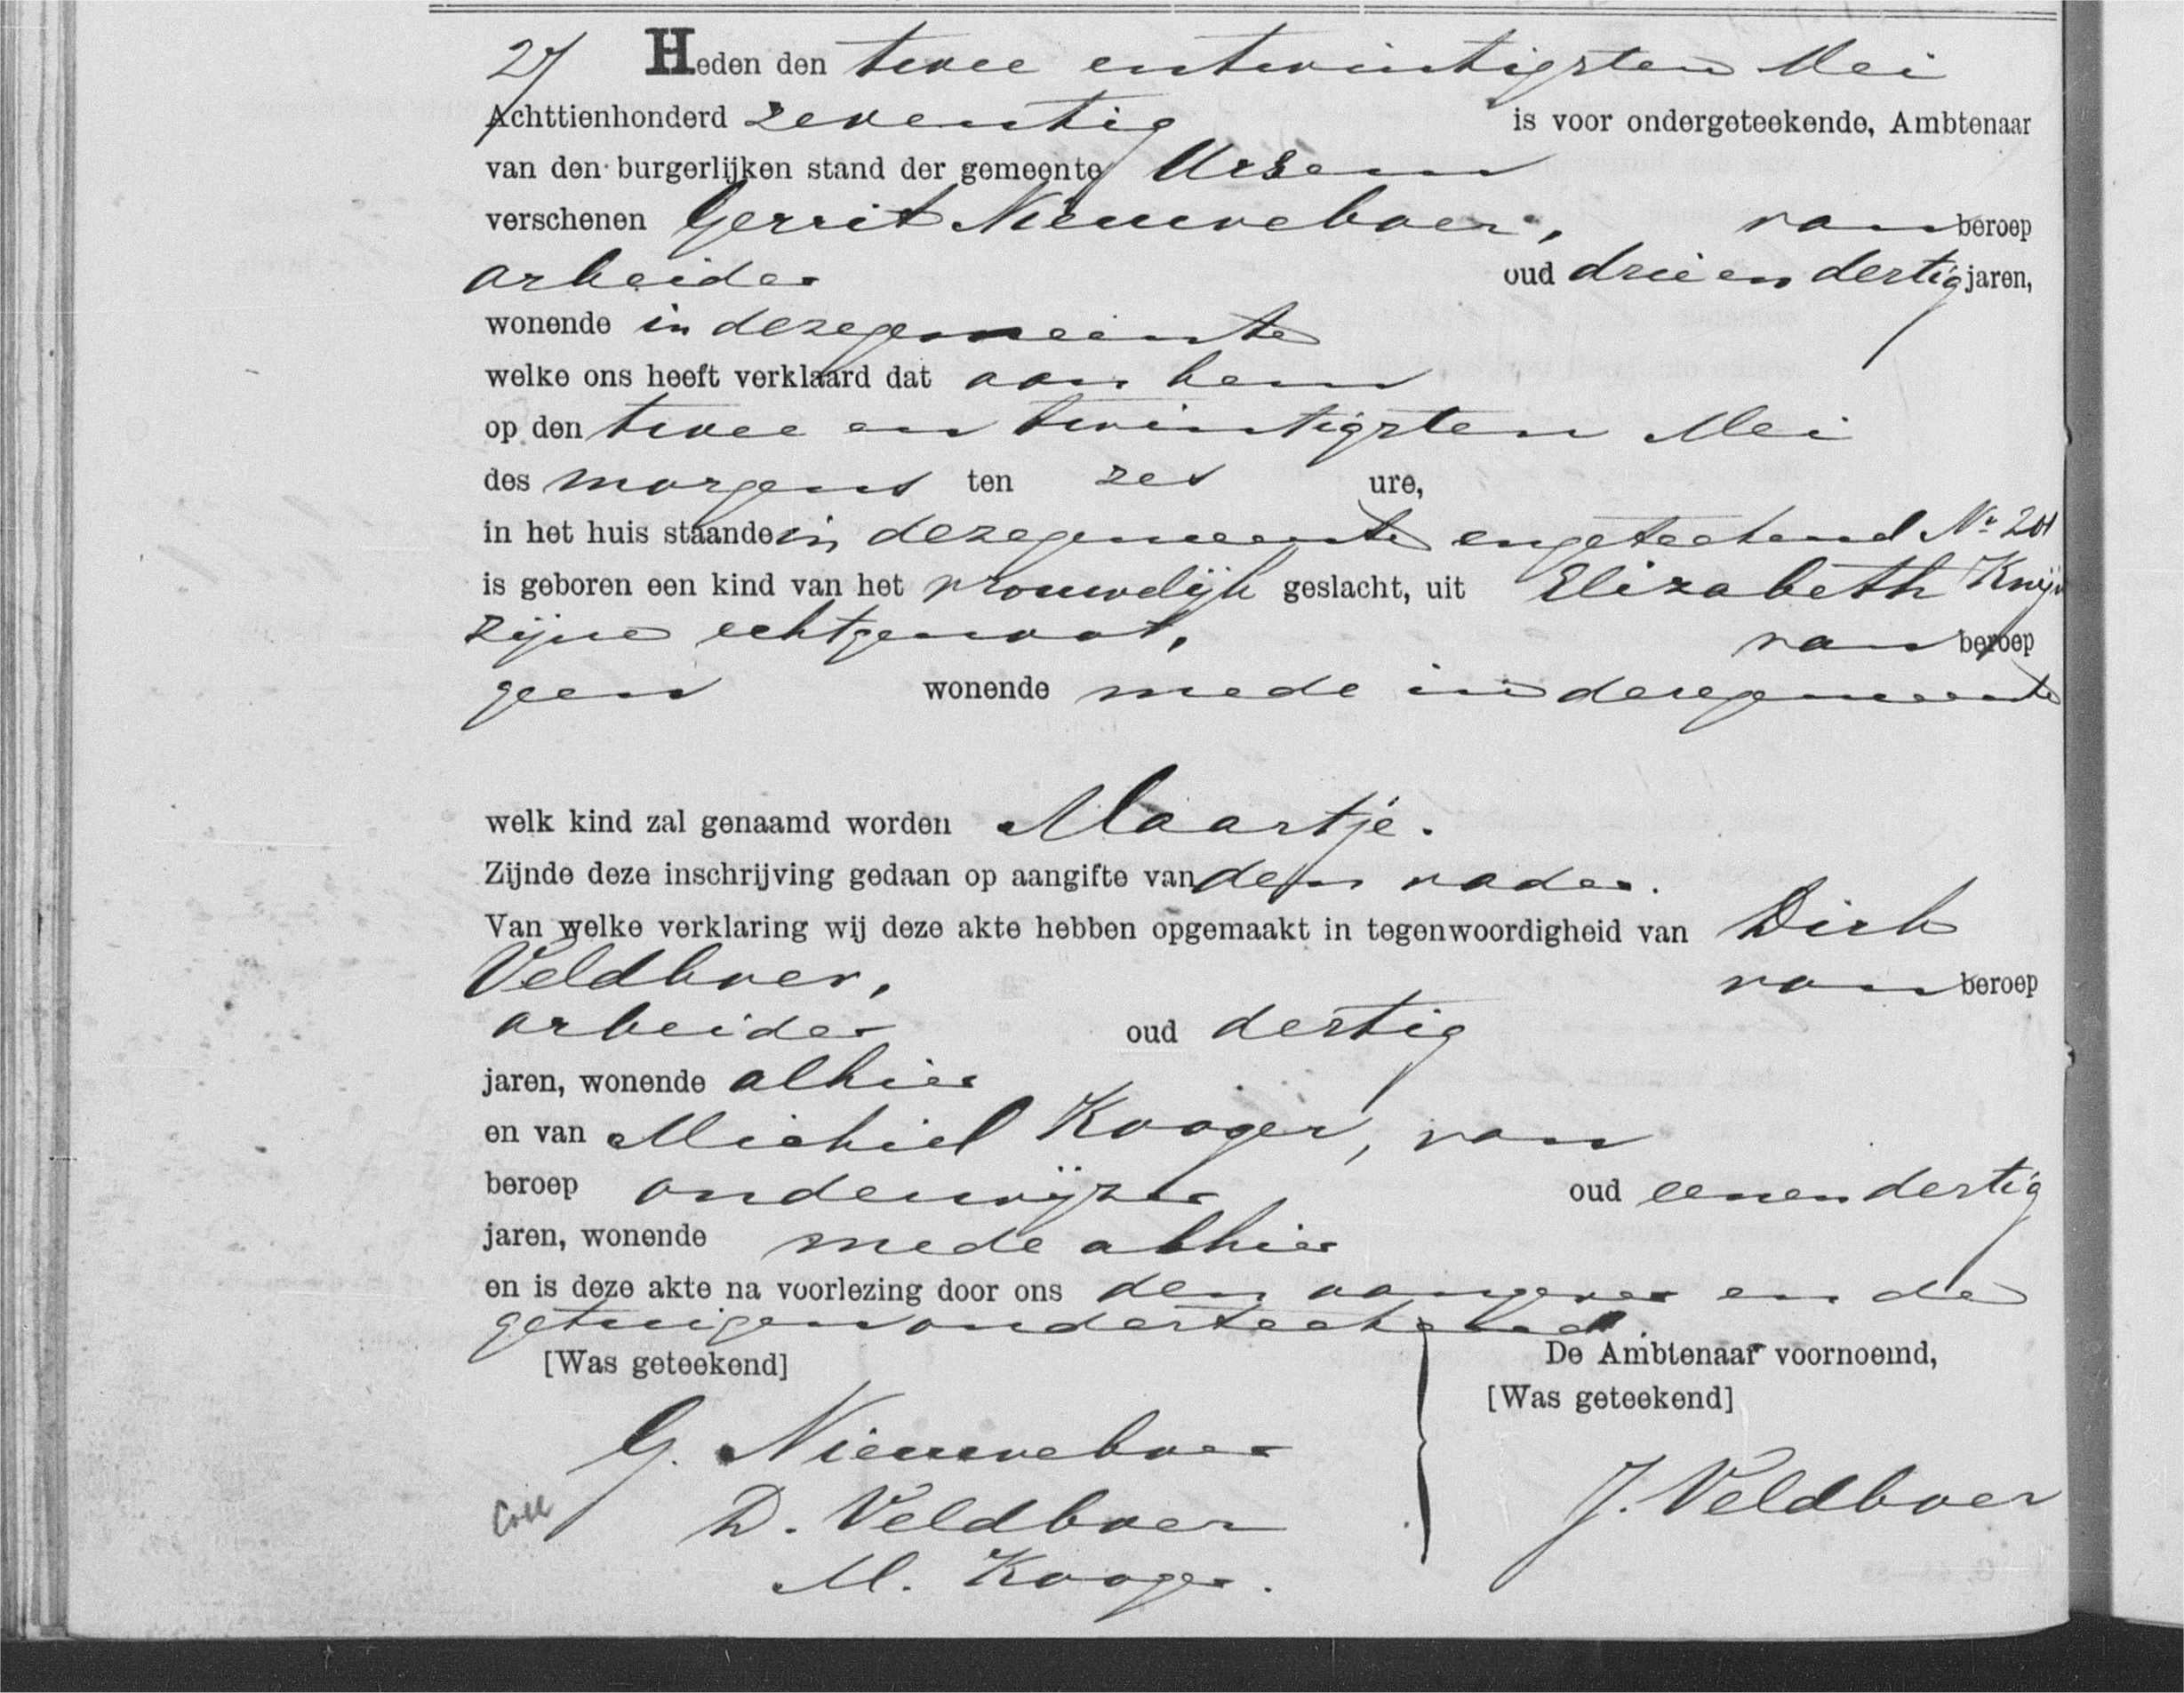 27 Heden den twee entwintigsten Mei
Achttienhonderd zeventig is voor ondergeteekende, Ambtenaar
van den burgerlijken stand der gemeente Ursem
verschenen Gerrit Nieuweboer, van beroep
arbeider oud drieendertig jaren,
wonende in dezegemeente
welke ons heeft verklaard dat aan hem
op den twee en twintigsten Mei
des morgens ten zes ure,
in het huis staande in dezegemeente engeteekend No 201
is geboren een kind van het vrouwelijk geslacht, uit Elizabeth
zijne echtgenoot, van beroep
geen wonende mede in dezegemeente
welk kind zal genaamd worden Maartje.
Zijnde deze inschrijving gedaan op aangifte van den vader.
Van welke verklaring wij deze akte hebben opgemaakt in tegenwoordigheid van Dirk
Veldboer, van beroep
arbeider oud dertig
jaren, wonende alhier
en van Michiel Kooger, van
beroep onderwijzer oud eenendertig
jaren, wonende mede alhier
en is deze akte na voorlezing door ons den aangever en de
getuigen onderteekend.
[Was geteekend] De Ambtenaar voornoemd,
[Was geteekend]
G. Nieuweboer
D. Veldboer J. Veldboer
M. Kooger.
Coll